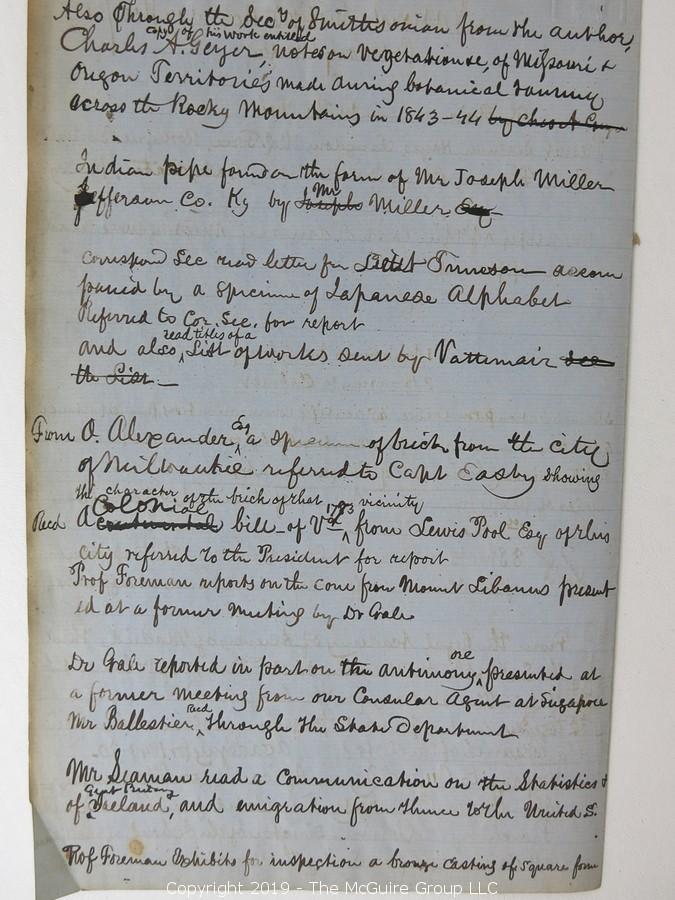 Also Through the Secy of Smithsonian from the author,
Copy of his work entitled
Charles A. Geyer, notes on vegetation &c, of Missouri &
Oregon Territories made during botanical Journey
across the Rocky Mountains in 1843-44 by Chas A Geyer
Indian pipe found on the farm of Mr Joseph Miller
Mr
Jefferson Co. Ky by Josephs Miller, Esq
Correspond Sec read letter fm Lieut accom
panied by a Specimen of Japanese Alphabet
Referred to Cor. Sec. for report
read titles of a
and also, List of works sent by Vattemair see
the List.
Esq
From O. Alexander a Specimen of brick from the city
of Milwaukie referred to Capt Easby showing
the character of the brick of that vicinity
Colonial 1773
Recd A Continental bill of Va from Lewis Pool Esq of this
city referred to the President for report
Prof Foreman reports on the cone from Mount Libanus present
ed at a former meeting by Dr Gale
ore
Dr Gale reported in part on the antimony presented at
a former meeting from our Consular Agent at Singapore
Recd
Mr Ballestier, Through the State Department
Mr Seaman read a Communication on the Statistics &
Great Britain
of Ireland, and emigration from thence to the United S.
Prof Foreman Exhibits for inspection a bronze casting of square form
Copyright 2019 - The McGuire Group LLC